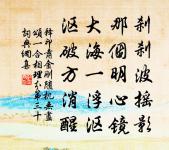 剎剎波搖影
那個明心鏡
大海一浮漚
漚破方消醒
釋印肅金剛隨機無盡
頌一合相理分第三十
詞典網集